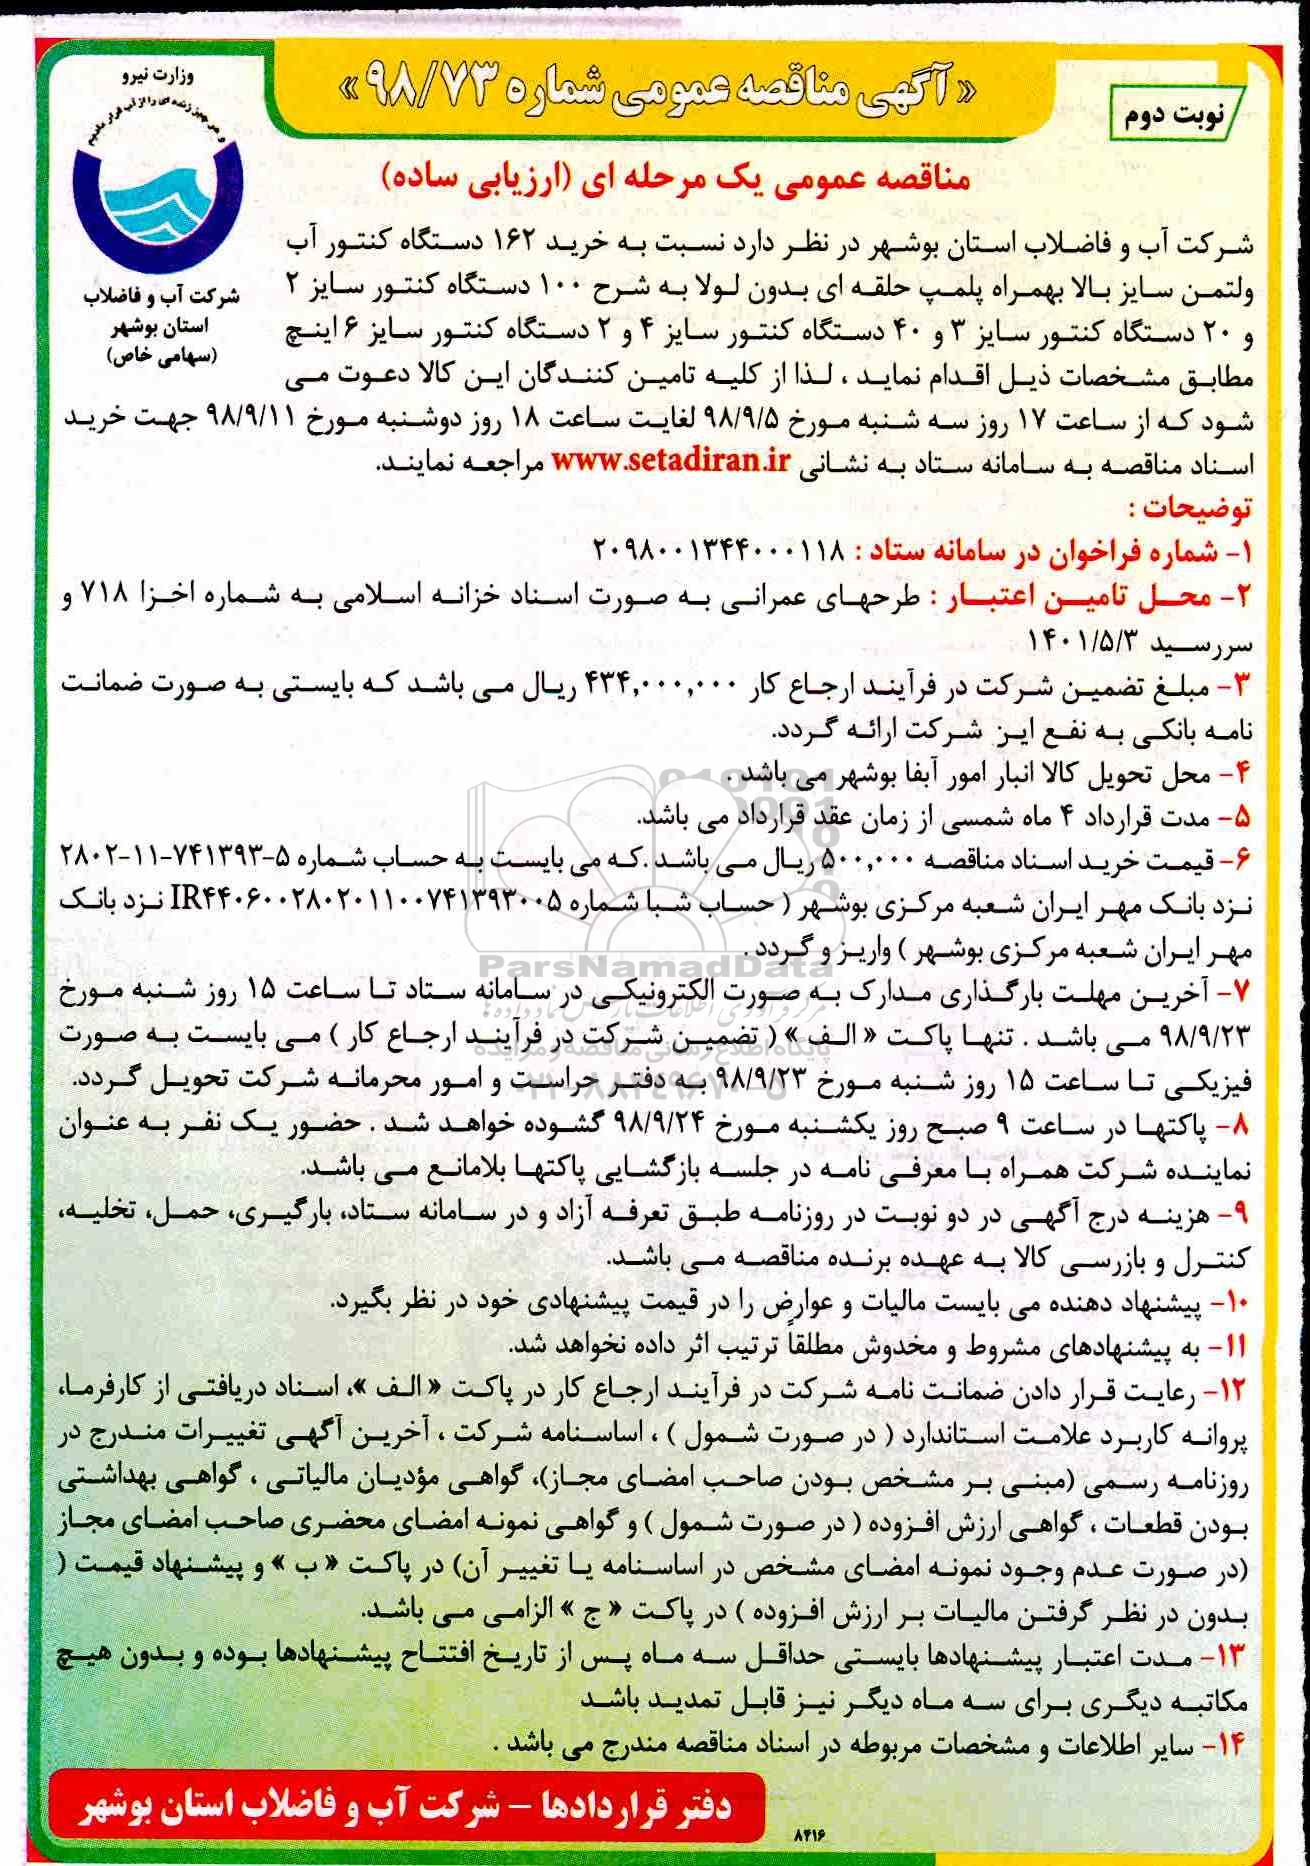 « آگهی مناقصه عمومی شماره ۹۸/۷۳ »
نوبت دوم
وزارت نیرو
شرکت آب و فاضلاب
استان بوشهر
(سهامی خاص)
مناقصه عمومی یک مرحله ای (ارزیابی ساده)
شرکت آب و فاضلاب استان بوشهر در نظر دارد نسبت به خرید ۱۶۲ دستگاه کنتور آب
ولتمن سایز بالا بهمراه پلمپ حلقه ای بدون لولا به شرح ۱۰۰ دستگاه کنتور سایز ۲
و ۲۰ دستگاه کنتور سایز ۳ و ۴۰ دستگاه کنتور سایز ۴ و ۲ دستگاه کنتور سایز ۶ اینچ
مطابق مشخصات ذیل اقدام نماید ، لذا از کلیه تامین کنندگان این کالا دعوت می
شود که از ساعت ۱۷ روز سه شنبه مورخ ۹۸/۹/۵ لغایت ساعت ۱۸ روز دوشنبه مورخ ۹۸/۹/۱۱ جهت خرید
اسناد مناقصه به سامانه ستاد به نشانی www.setadiran.ir مراجعه نمایند.
توضیحات :
۱- شماره فراخوان در سامانه ستاد : ۲۰۹۸۰۰۱۳۴۴۰۰۰۱۱۸
۲- محل تامین اعتبار : طرحهای عمرانی به صورت اسناد خزانه اسلامی به شماره اخزا ۷۱۸ و
سررسید ۱۴۰۱/۵/۳
۳- مبلغ تضمین شرکت در فرآیند ارجاع کار ۴۳۴,۰۰۰,۰۰۰ ریال می باشد که بایستی به صورت ضمانت
نامه بانکی به نفع این شرکت ارائه گردد.
۴- محل تحویل کالا انبار امور آبفا بوشهر می باشد .
۵- مدت قرارداد ۴ ماه شمسی از زمان عقد قرارداد می باشد.
۶- قیمت خرید اسناد مناقصه ۵۰۰,۰۰۰ ریال می باشد .که می بایست به حساب شماره ۵-۷۴۱۳۹۳-۱۱-۲۸۰۲
نزد بانک مهر ایران شعبه مرکزی بوشهر ( حساب شبا شماره IR۴۴۰۶۰۰۲۸۰۲۰۱۱۰۰۷۴۱۳۹۳۰۰۵ نزد بانک
مهر ایران شعبه مرکزی بوشهر ) واریز و گردد .
ParsNamadData
۷- آخرین مهلت بارگذاری مدارک به صورت الکترونیکی در سامانه ستاد تا ساعت ۱۵ روز شنبه مورخ
۹۸/۹/۲۳ می باشد . تنها پاکت « الف » ( تضمین شرکت در فرآیند ارجاع کار ) می بایست به صورت
پایگاه اطلاع رسانی مناقصه و مزایده
فیزیکی تا ساعت ۱۵ روز شنبه مورخ ۹۸/۹/۲۳ به دفتر حراست و امور محرمانه شرکت تحویل گردد.
۸- پاکتها در ساعت ۹ صبح روز یکشنبه مورخ ۹۸/۹/۲۴ گشوده خواهد شد . حضور یک نفر به عنوان
نماینده شرکت همراه با معرفی نامه در جلسه بازگشایی پاکتها بلامانع می باشد.
۹- هزینه درج آگهی در دو نوبت در روزنامه طبق تعرفه آزاد و در سامانه ستاد، بارگیری، حمل، تخلیه،
کنترل و بازرسی کالا به عهده برنده مناقصه می باشد.
۱۰- پیشنهاد دهنده می بایست مالیات و عوارض را در قیمت پیشنهادی خود در نظر بگیرد.
۱۱- به پیشنهادهای مشروط و مخدوش مطلقاً ترتیب اثر داده نخواهد شد.
۱۲- رعایت قرار دادن ضمانت نامه شرکت در فرآیند ارجاع کار در پاکت « الف »، اسناد دریافتی از کارفرما،
پروانه کاربرد علامت استاندارد ( در صورت شمول ) ، اساسنامه شرکت ، آخرین آگهی تغییرات مندرج در
روزنامه رسمی (مبنی بر مشخص بودن صاحب امضای مجاز)، گواهی مؤدیان مالیاتی ، گواهی بهداشتی
بودن قطعات ، گواهی ارزش افزوده ( در صورت شمول ) و گواهی نمونه امضای محضری صاحب امضای مجاز
(در صورت عدم وجود نمونه امضای مشخص در اساسنامه یا تغییر آن) در پاکت « ب » و پیشنهاد قیمت (
بدون در نظر گرفتن مالیات بر ارزش افزوده ) در پاکت « ج » الزامی می باشد.
۱۳- مدت اعتبار پیشنهادها بایستی حداقل سه ماه پس از تاریخ افتتاح پیشنهادها بوده و بدون هیچ
مکاتبه دیگری برای سه ماه دیگر نیز قابل تمدید باشد
۱۴- سایر اطلاعات و مشخصات مربوطه در اسناد مناقصه مندرج می باشد .
دفتر قراردادها – شرکت آب و فاضلاب استان بوشهر
۸۴۱۶